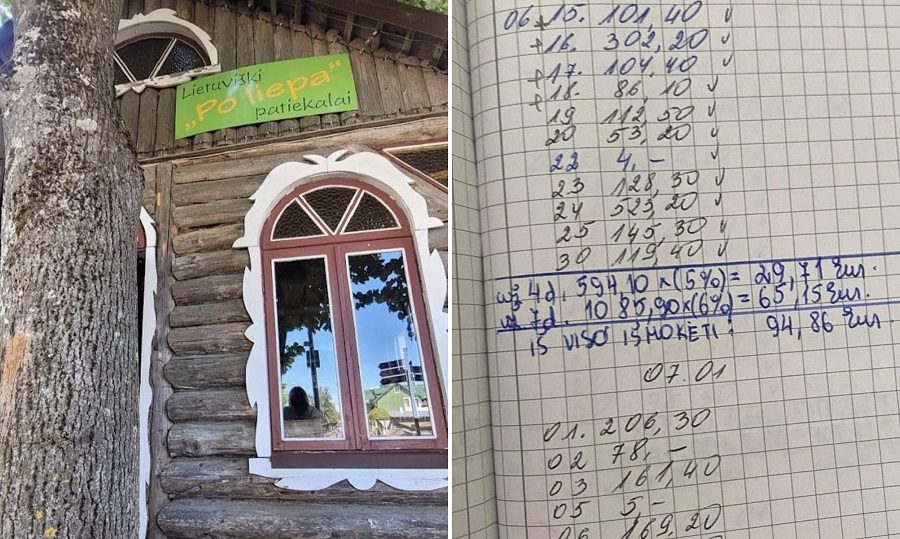 Lietuviški
„Po liepa“
patiekalai
06 +15. 101,40 √
+16. 302,20 √
+17. 104,40 √
+18. 86,10 √
19 112,50 √
20 53,20 √
22 4,- √
23 128,30 √
24 523,20 √
25 145,30 √
30 119,40 √
už 4d. 594,10 x(5%)= 29,71 Eur.
už 7d. 1085,90x(6%)= 65,15Eur.
IŠ VISO IŠMOKĖTI: 94,86 Eur
07.01
01. 206,30
02 78,-
03 161,40
05 5,-
06 169,20